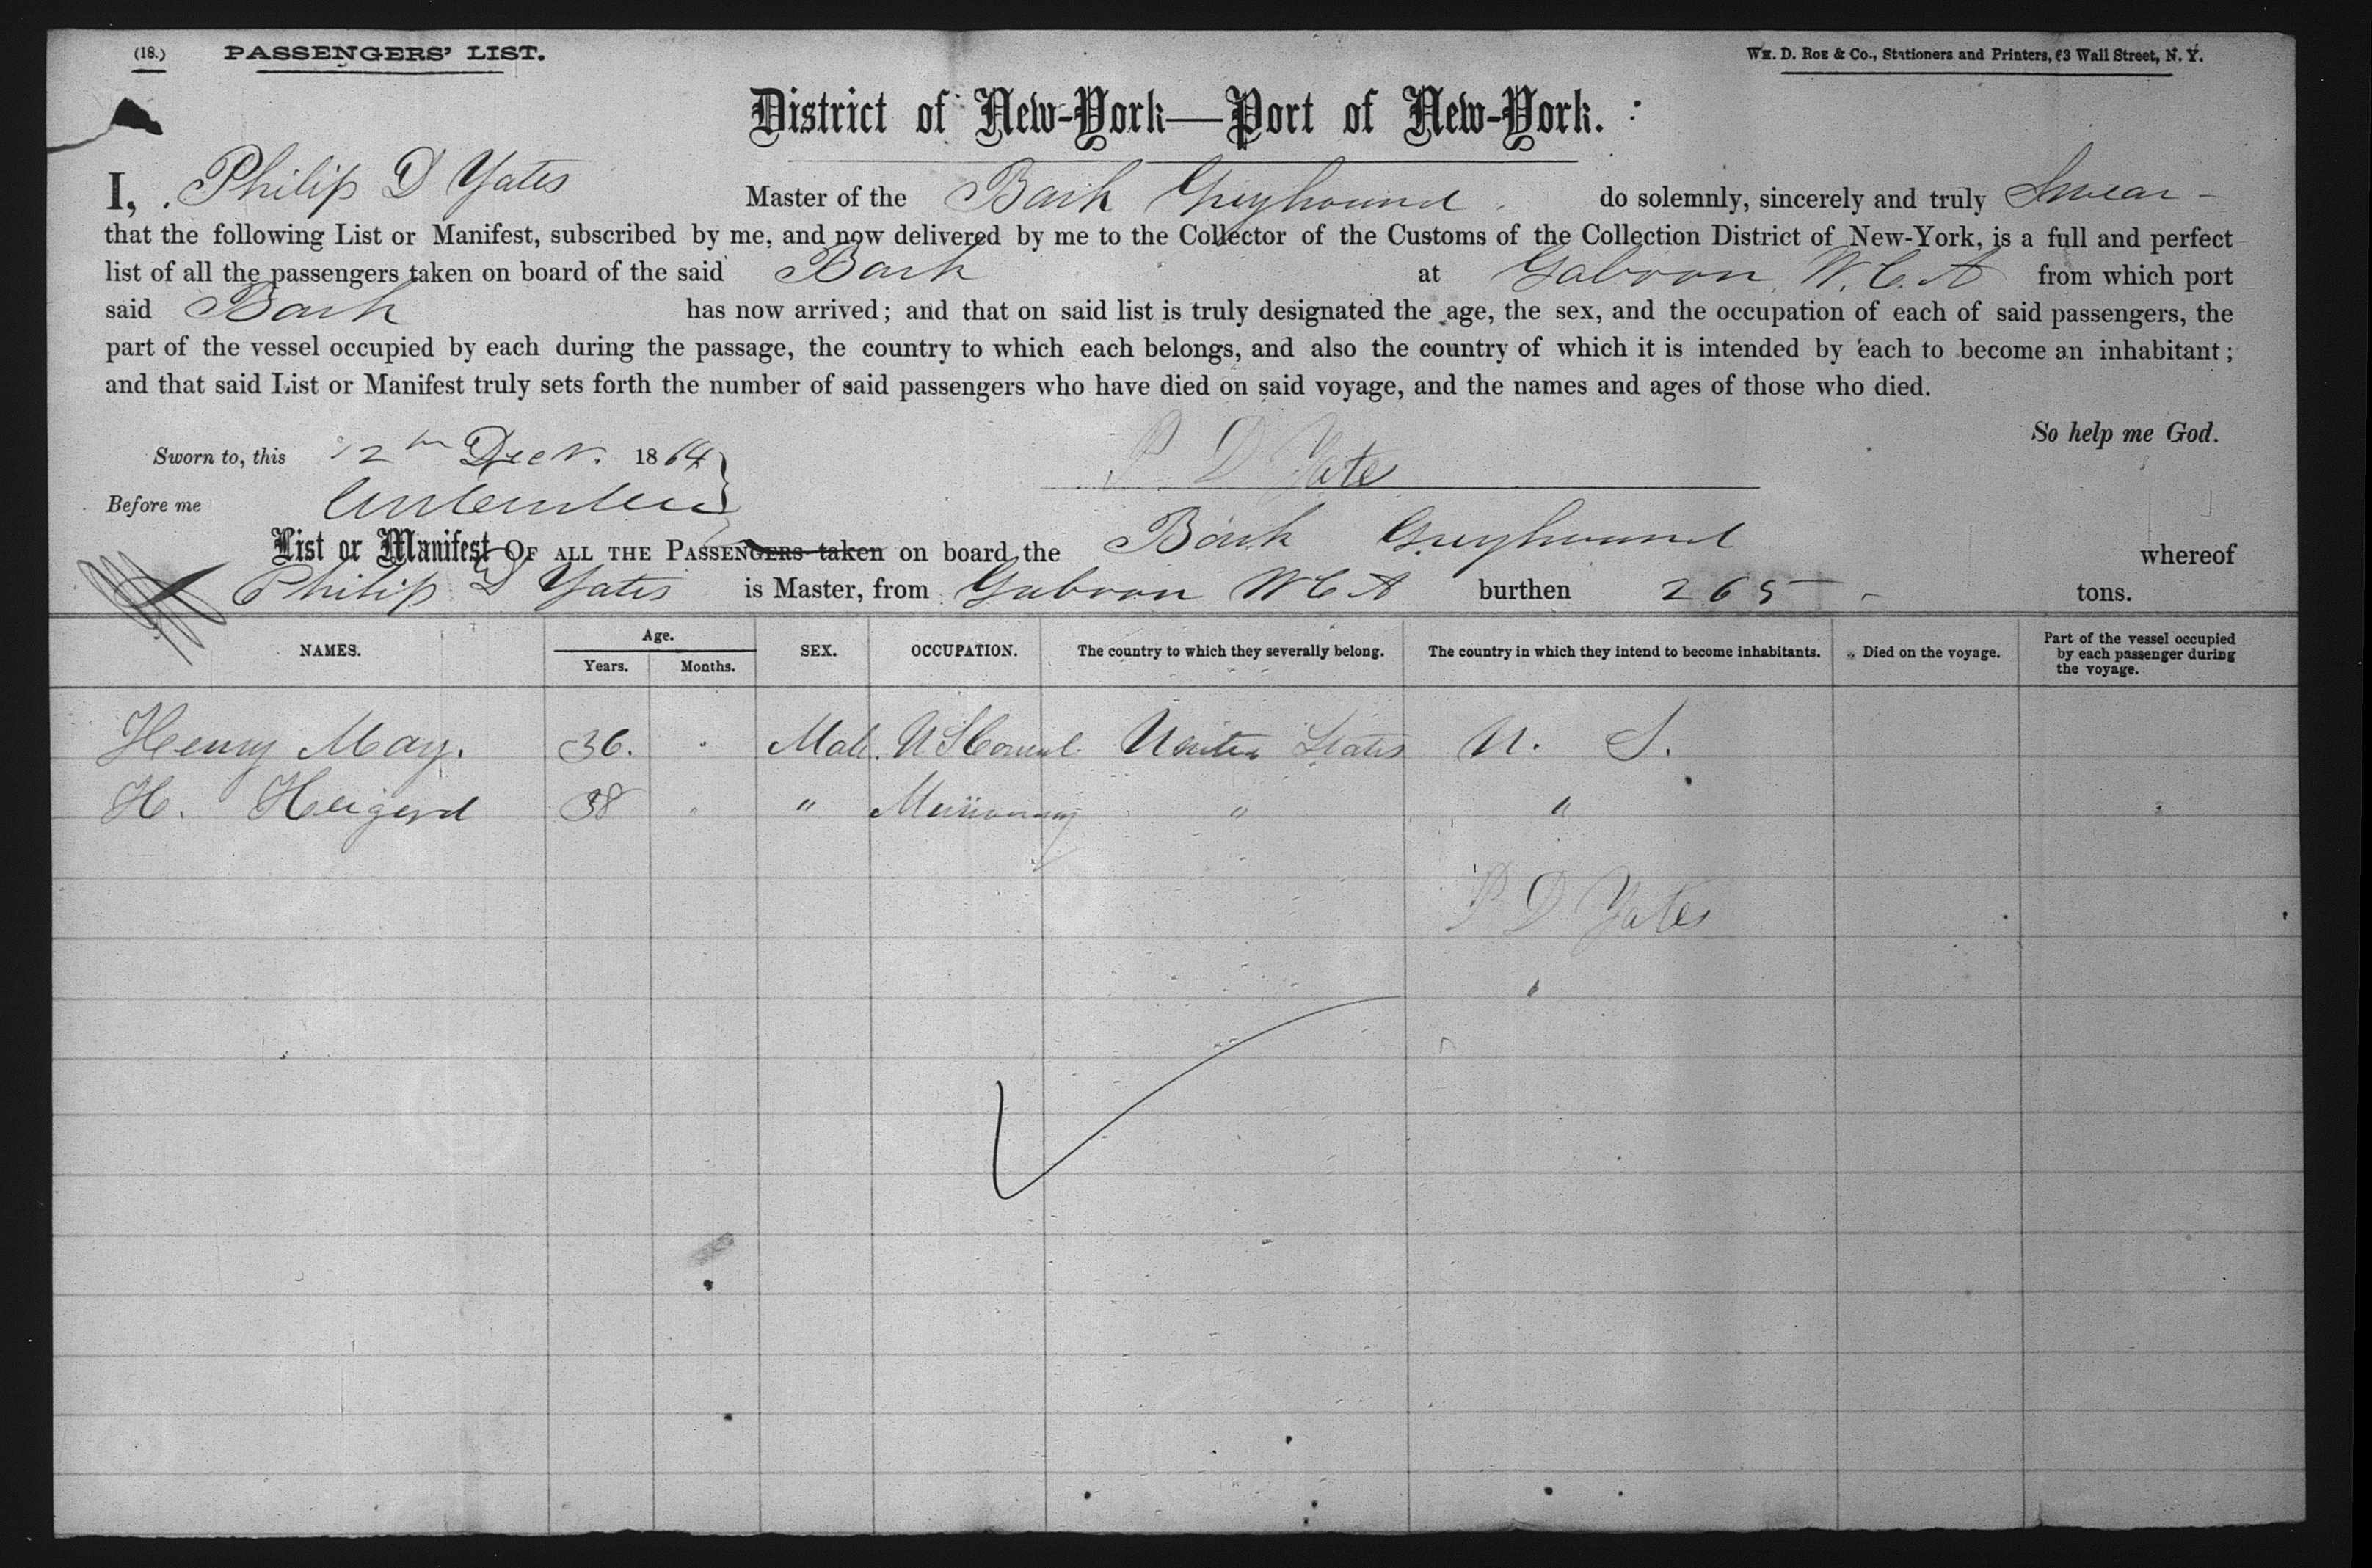 (18.) PASSENGERS' LIST. WM. D. ROE & Co., Stationers and Printers, 63 Wall Street, N. Y.
District of New-York—Port of New-York.
I, Philip D Yates Master of the Bark Greyhound do solemnly, sincerely and truly Swear
that the following List or Manifest, subscribed by me, and now delivered by me to the Collector of the Customs of the Collection District of New-York, is a full and perfect
list of all the passengers taken on board of the said Bark at Gaboon, W. C. A from which port
said Bark has now arrived; and that on said list is truly designated the age, the sex, and the occupation of each of said passengers, the
part of the vessel occupied by each during the passage, the country to which each belongs, and also the country of which it is intended by each to become an inhabitant;
and that said List or Manifest truly sets forth the number of said passengers who have died on said voyage, and the names and ages of those who died.
So help me God.
Sworn to, this 12th Decr. 1864
P D Yates
Before me
List or Manifest OF ALL THE PASSENGERS taken on board the Bark Greyhound whereof
Philip D Yates is Master, from Gaboon W C A burthen 265 tons.
NAMES. Age. Years. Months. SEX. OCCUPATION. The country to which they severally belong. The country in which they intend to become inhabitants. Died on the voyage. Part of the vessel occupied by each passenger during the voyage.
Henry May. 36. Male. U S Consul United States U. S.
H. Heigerd 38 " Missionary " "
P D Yates